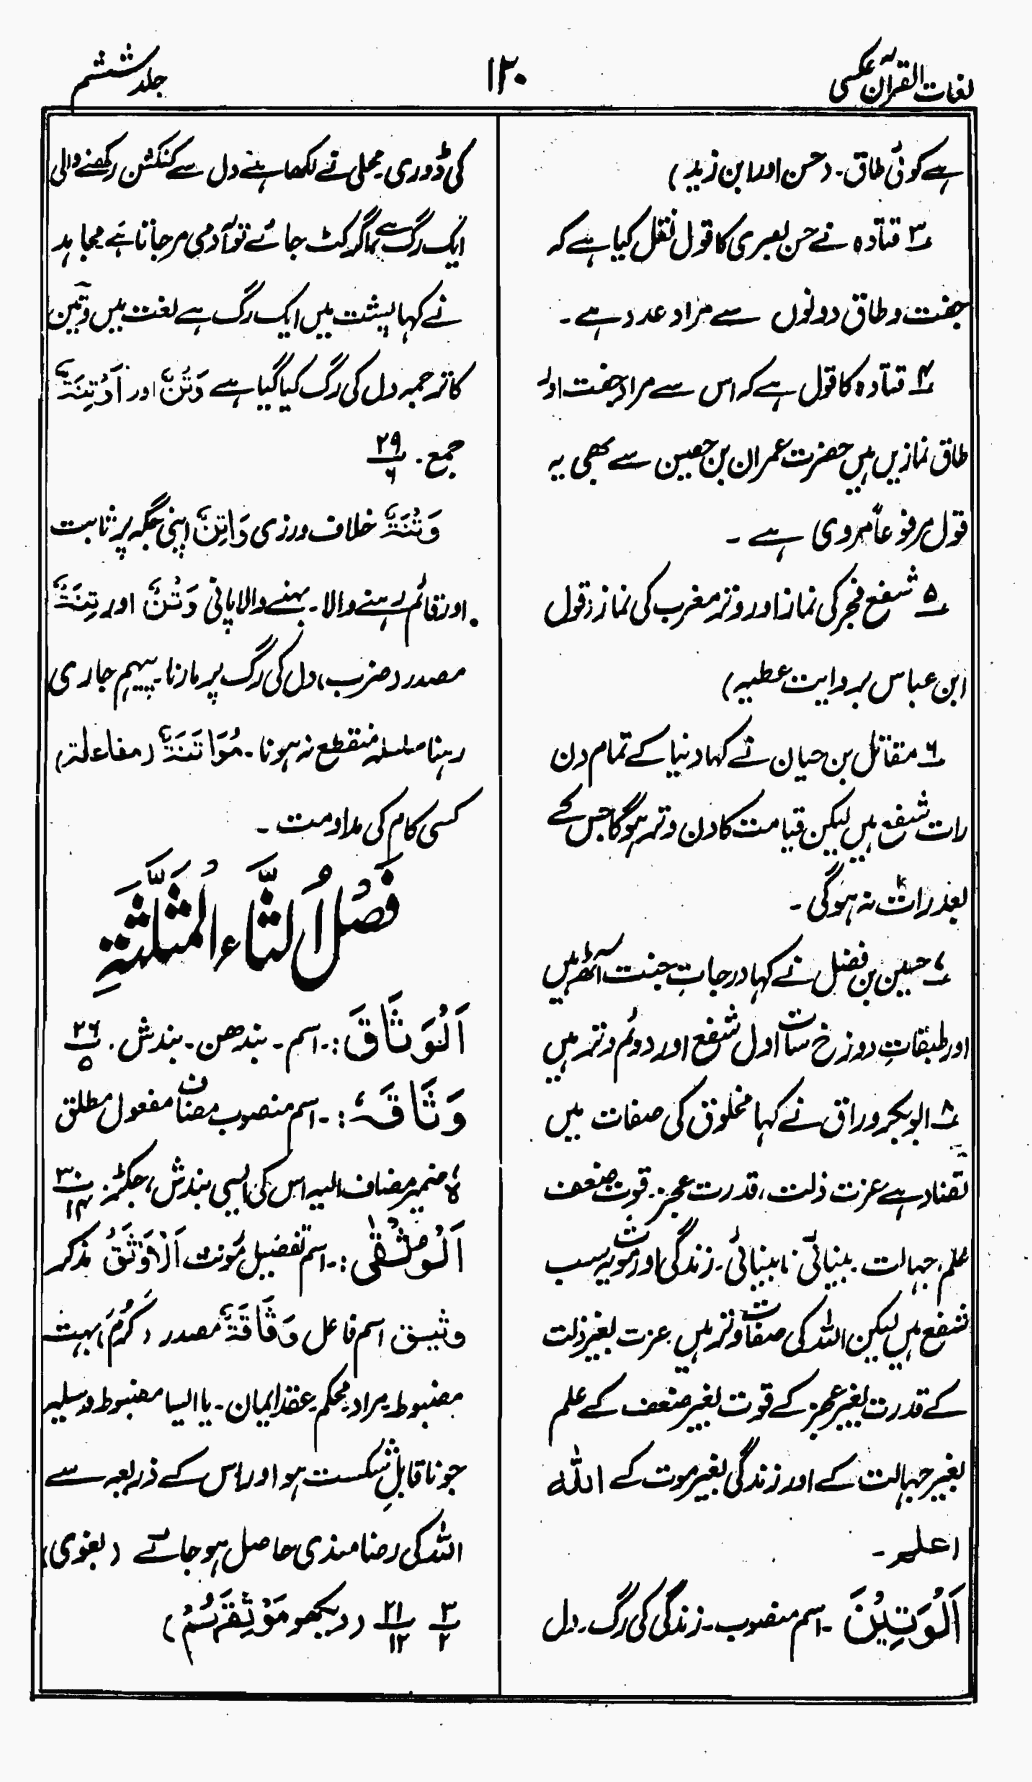 لغات القرآن عکسی
۱۳۰
جلد ششم
ہے کوئی طاق۔ (حسن اور ابن زید)
۳ قتادہ نے حسن بصری کا قول نقل کیا ہے کہ
جفت و طاق دونوں سے مراد عدد ہے۔
۴ قتادہ کا قول ہے کہ اس سے مراد جفت اور
طاق نمازیں ہیں حضرت عمران بن حصین سے بھی یہ
قول مرفوعاً مروی ہے۔
۵ شفع فجر کی نماز اور وتر مغرب کی نماز (قول
ابن عباس بروایت عطیہ)
۶ مقاتل بن حیان نے کہا دنیا کے تمام دن
رات شفع ہیں لیکن قیامت کا دن وتر ہوگا جس کے
بعد رات نہ ہوگی۔
۷ حسین بن فضل نے کہا درجاتِ جنت آٹھ ہیں
اور طبقاتِ دوزخ سات اول شفع اور دوئم وتر ہیں
۸ ابوبکر وراق نے کہا مخلوق کی صفات میں
تضاد ہے عزت ذلت، قدرت عجز۔ قوت ضعف
علم، جہالت۔ بینائی نابینائی۔ زندگی اور موت یہ سب
شفع ہیں لیکن اللہ کی صفات وتر ہیں، عزت بغیر ذلت
کے قدرت بغیر عجز کے قوت بغیر ضعف کے علم
بغیر جہالت کے اور زندگی بغیر موت کے اللہ
اعلم۔
اَلْوَتِیْنَ ۔ اسم منصوب۔ زندگی کی رگ۔ دل
کی ڈوری۔ محلی نے لکھا ہے دل سے کنکشن رکھنے والی
ایک رگ ہے اگر کٹ جائے تو آدمی مر جاتا ہے مجاہد
نے کہا پشت میں ایک رگ ہے لغت میں وتین
کا ترجمہ دل کی رگ کیا گیا ہے وُتُنٌ اور اَوْتِنَۃٌ
جمع۔ ۲۹/۶
وَتْنَۃٌ خلاف ورزی وَاتِنٌ اپنی جگہ پر ثابت
اور قائم رہنے والا۔ بہنے والا پانی وَتْنٌ اور تِنَۃٌ
مصدر (ضرب)، دل کی رگ پر مارنا۔ پیہم جاری
رہنا سلسلہ منقطع نہ ہونا۔ مُوَاتَنَۃٌ (مفاعلۃ)
کسی کام کی مداومت۔
فَصْلُ الثَّاءِ الْمُثَلَّثَۃِ
اَلْوَثَاقَ:۔ اسم۔ بندھن۔ بندش۔ ۲۶/۵
وَثَاقَہٗ:۔ اسم منصوب مضاف مفعول مطلق
ہٗ ضمیر مضاف الیہ اس کی ایسی بندش، جکڑ۔ ۳۰/۱۴
اَلْوُثْقٰی:۔ اسم تفضیل مونث اَلْاَوْثَقُ مذکر
وثیق اسم فاعل وَثَاقَۃٌ مصدر (کَرُمَ) بہت
مضبوط۔ مراد محکم عقد ایمان۔ یا ایسا مضبوط وسیلہ
جو ناقابلِ شکست ہو اور اس کے ذریعہ سے
اللہ کی رضامندی حاصل ہو جائے (بغوی)
۳/۲ ۲۱/۱۲ (دیکھو مَوْثِقَہُمْ)